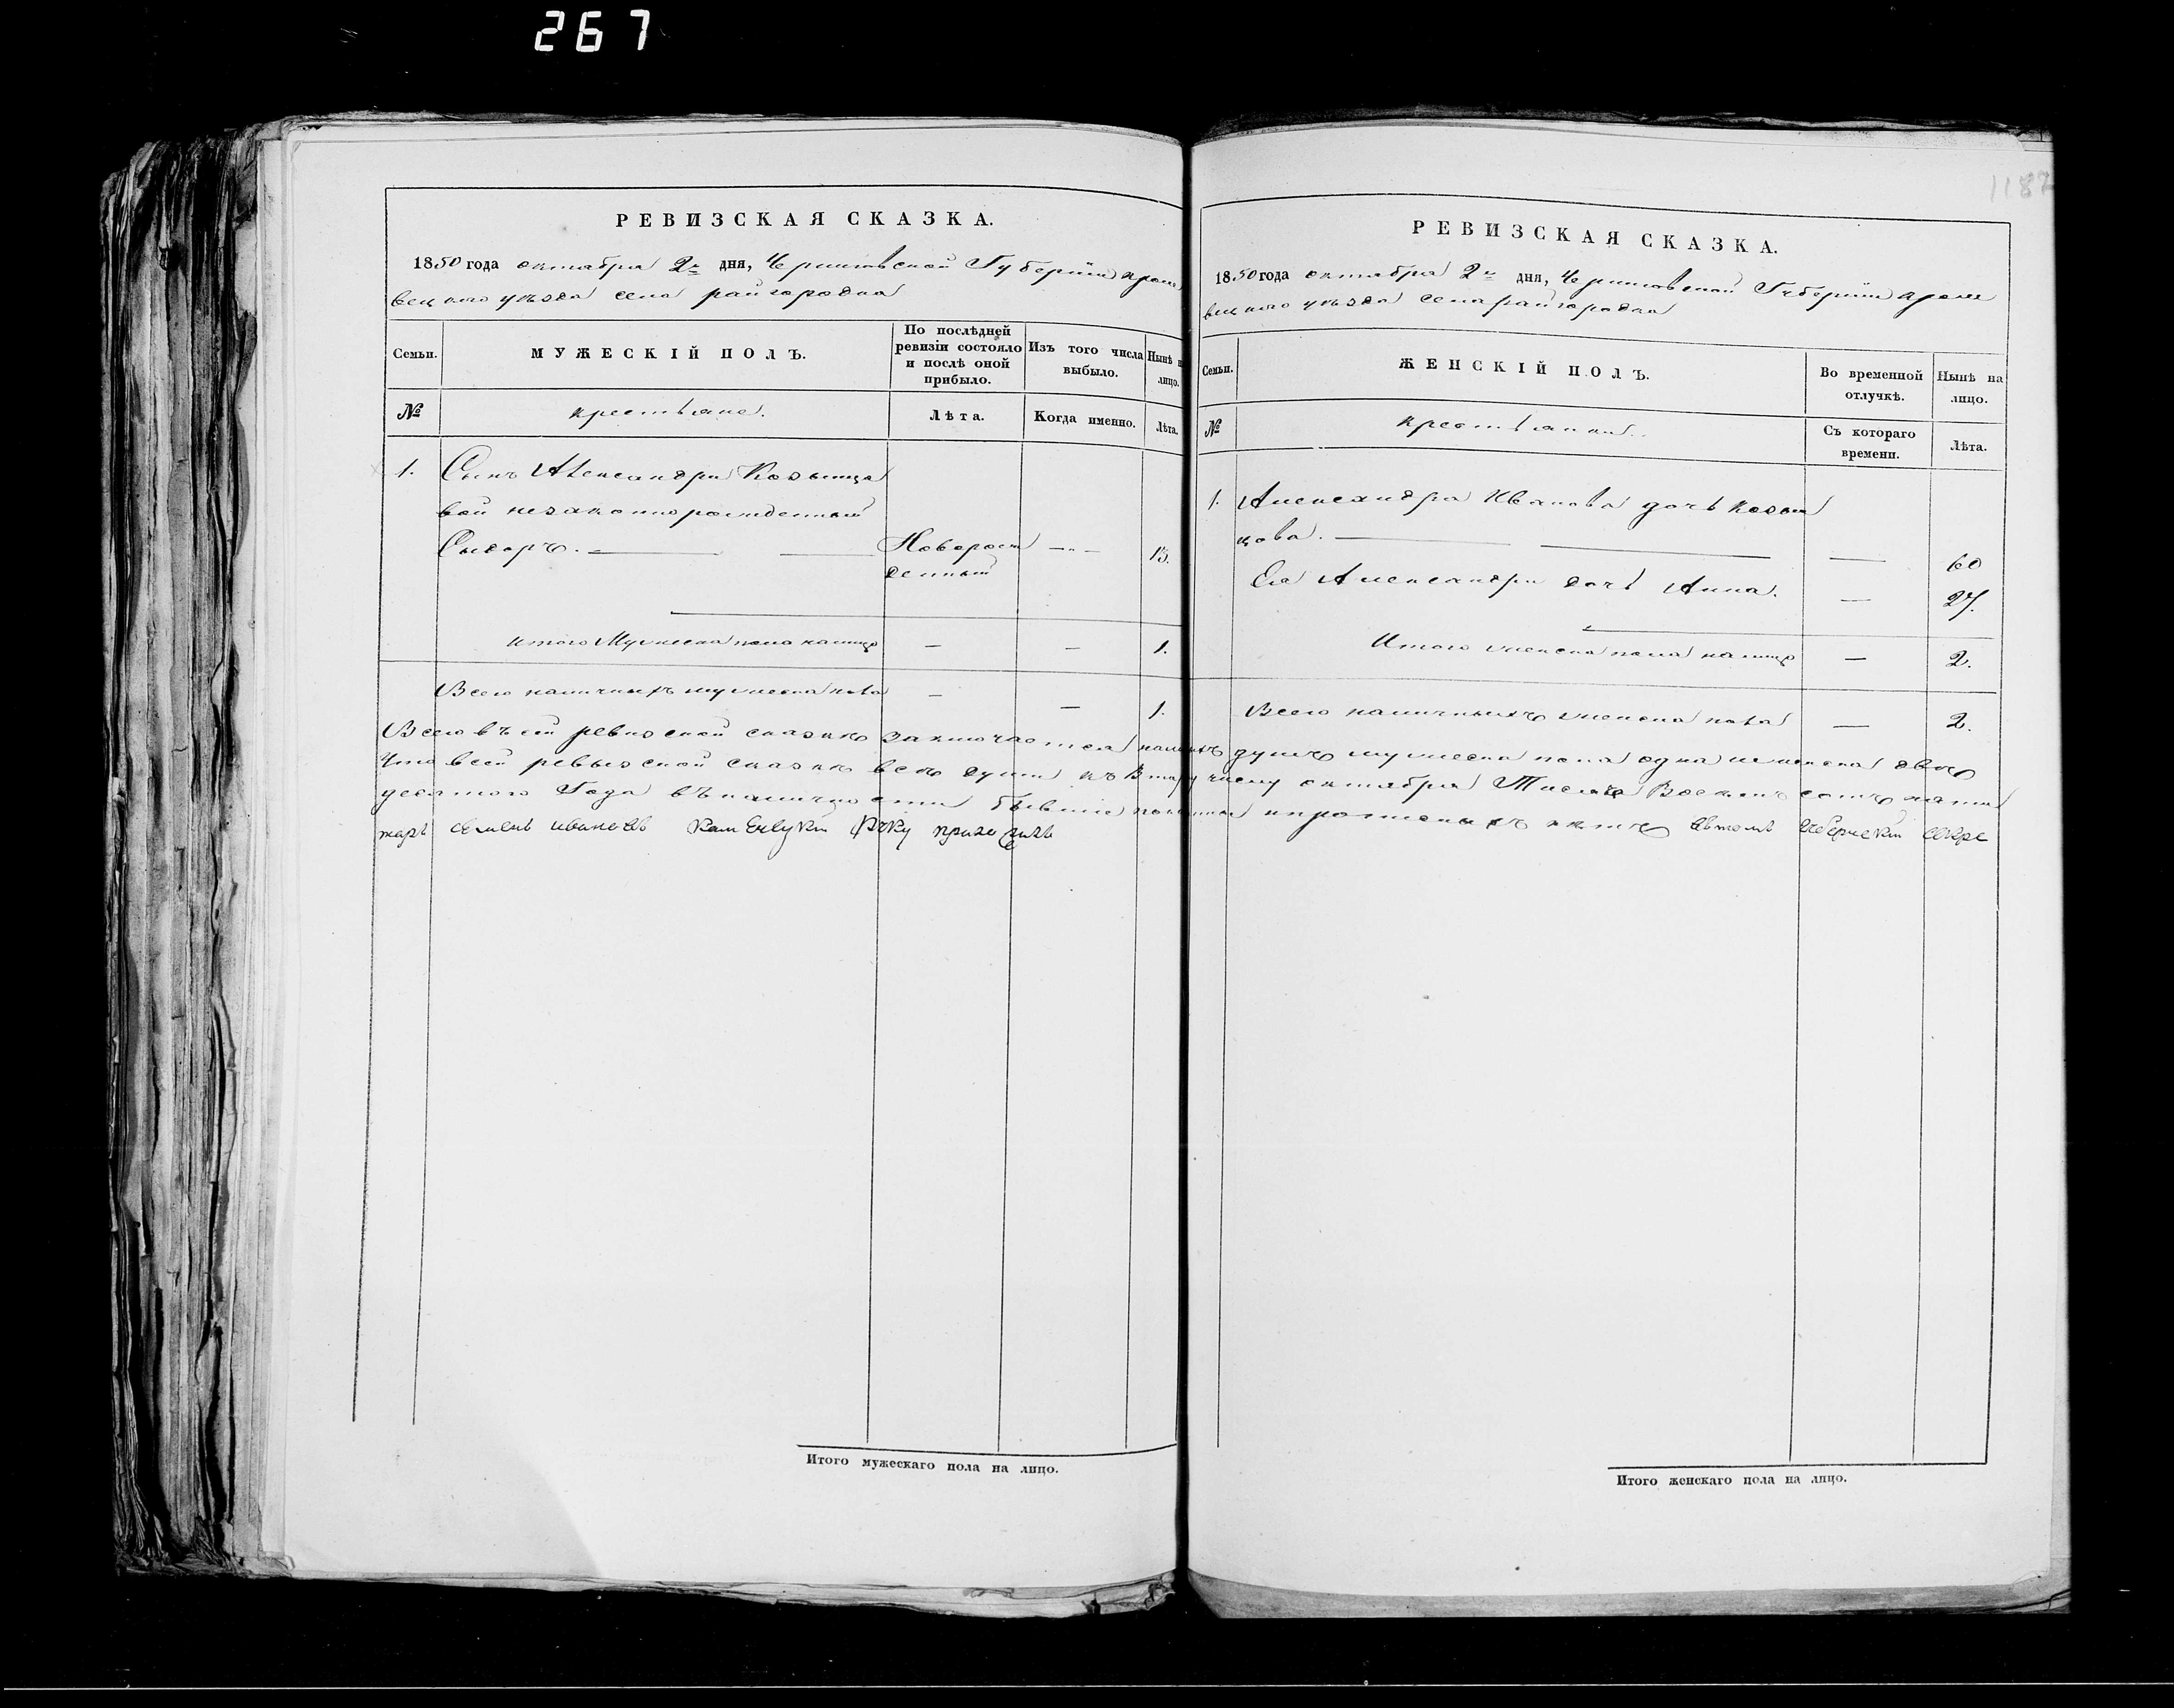 267
1187
РЕВИЗСКАЯ СКАЗКА.
1850 года октября 2го дня, Черниговской Губернии кроле
вецкого уезда села райгородка
Семьи.
МУЖЕСКІЙ ПОЛЪ.
По послѣдней ревизіи состояло и послѣ оной прибыло.
Изъ того числа выбыло.
Нынѣ на лицо.
№
крестьяне.
Лѣта.
Когда именно.
Лѣта.
1. Сынъ Александры Козьмица
вой незаконнорожденный
Сидоръ. Новорож
денный 13.
итого Мужеска пола налицо — — 1.
Всего наличныхъ мужеска пола — — 1.
РЕВИЗСКАЯ СКАЗКА.
1850 года октября 2го дня, Черниговской Губернии кроле
вецкого уезда села райгородка
Семьи.
ЖЕНСКІЙ ПОЛЪ.
Во временной отлучкѣ.
Нынѣ на лицо.
№
крестьянки.
Съ котораго времени.
Лѣта.
1. Александра Иванова дочь
цова. — 60
Ея Александры дочь Анна. — 27.
Итого женска пола налицо — 2.
Всего наличныхъ женска пола — 2.
Всего въ сей ревизской сказке заключается налицо душъ мужеска пола одна и женска две
Что в сей ревизской сказке все души к октября Тисяча Восемъ сотъ пяти
десятого Года въ наличности бывшие показаны и прописныхъ нетъ въ томъ Губернский секре
тарь семенъ ивановъ руку приложилъ
Итого мужескаго пола на лицо.
Итого женскаго пола на лицо.